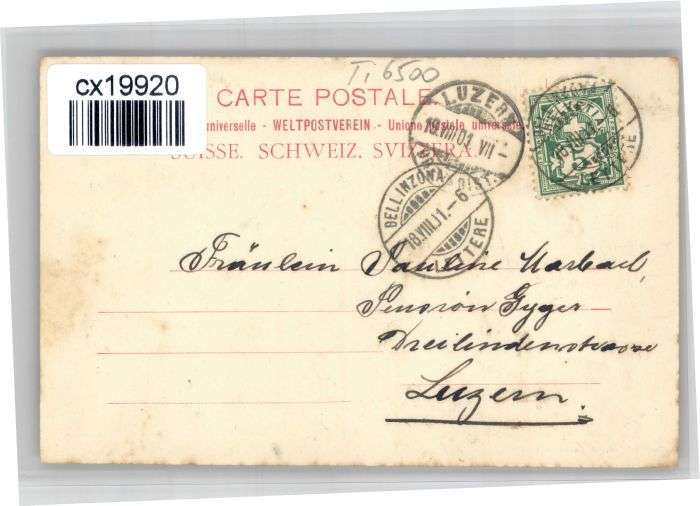 cx19920
T, 6500
CARTE POSTALE.
universelle - WELTPOSTVEREIN. - Union postale universelle
SUISSE. SCHWEIZ. SVIZZERA.
LUZERN
19.VIII.01. VII
BELLINZONA
18.VIII.01.-6
LETTERE
HELVETIA
Fräulein Pauline Marbach,
Pension Gyger
Dreilindenstrasse
Luzern.